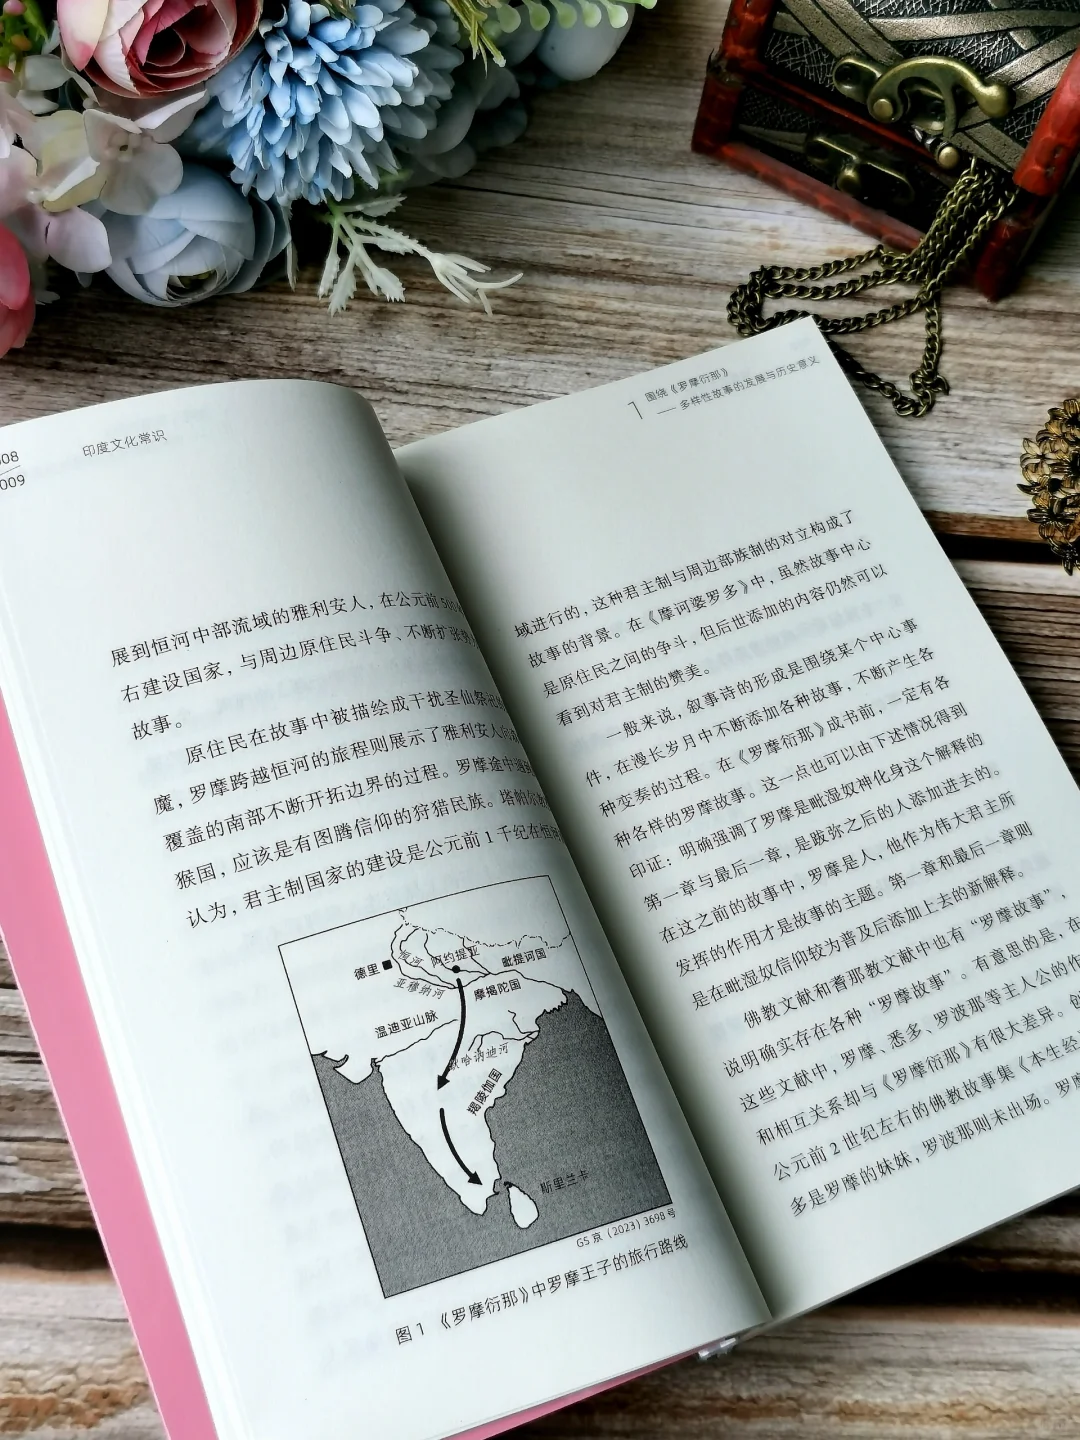 08
009
印度文化常识
展到恒河中部流域的雅利安人，在公元前500
右建设国家，与周边原住民斗争、不断扩张势
故事。
原住民在故事中被描绘成干扰圣仙祭祀的
魔，罗摩跨越恒河的旅程则展示了雅利安人向
覆盖的南部不断开拓边界的过程。罗摩途中遇到
猴国，应该是有图腾信仰的狩猎民族。塔帕尔
认为，君主制国家的建设是公元前1千纪在恒河
德里
恒河
阿约提亚
毗提诃国
亚穆纳河
摩揭陀国
温迪亚山脉
哈讷迪河
羯陵伽国
斯里兰卡
GS京（2023）3698号
图1 《罗摩衍那》中罗摩王子的旅行路线
1
围绕《罗摩衍那》
—— 多样性故事的发展与历史意义
域进行的，这种君主制与周边部族制的对立构成了
故事的背景。在《摩诃婆罗多》中，虽然故事中心
是原住民之间的争斗，但后世添加的内容仍然可以
看到对君主制的赞美。
一般来说，叙事诗的形成是围绕某个中心事
件，在漫长岁月中不断添加各种故事，不断产生各
种变奏的过程。在《罗摩衍那》成书前，一定有各
种各样的罗摩故事。这一点也可以由下述情况得到
印证：明确强调了罗摩是毗湿奴神化身这个解释的
第一章与最后一章，是跋弥之后的人添加进去的。
在这之前的故事中，罗摩是人，他作为伟大君主所
发挥的作用才是故事的主题。第一章和最后一章则
是在毗湿奴信仰较为普及后添加上去的新解释。
佛教文献和耆那教文献中也有“罗摩故事”，
说明确实存在各种“罗摩故事”。有意思的是，在
这些文献中，罗摩、悉多、罗波那等主人公的作
和相互关系却与《罗摩衍那》有很大差异。
公元前2世纪左右的佛教故事集《本生经
多是罗摩的妹妹，罗波那则未出场。罗摩